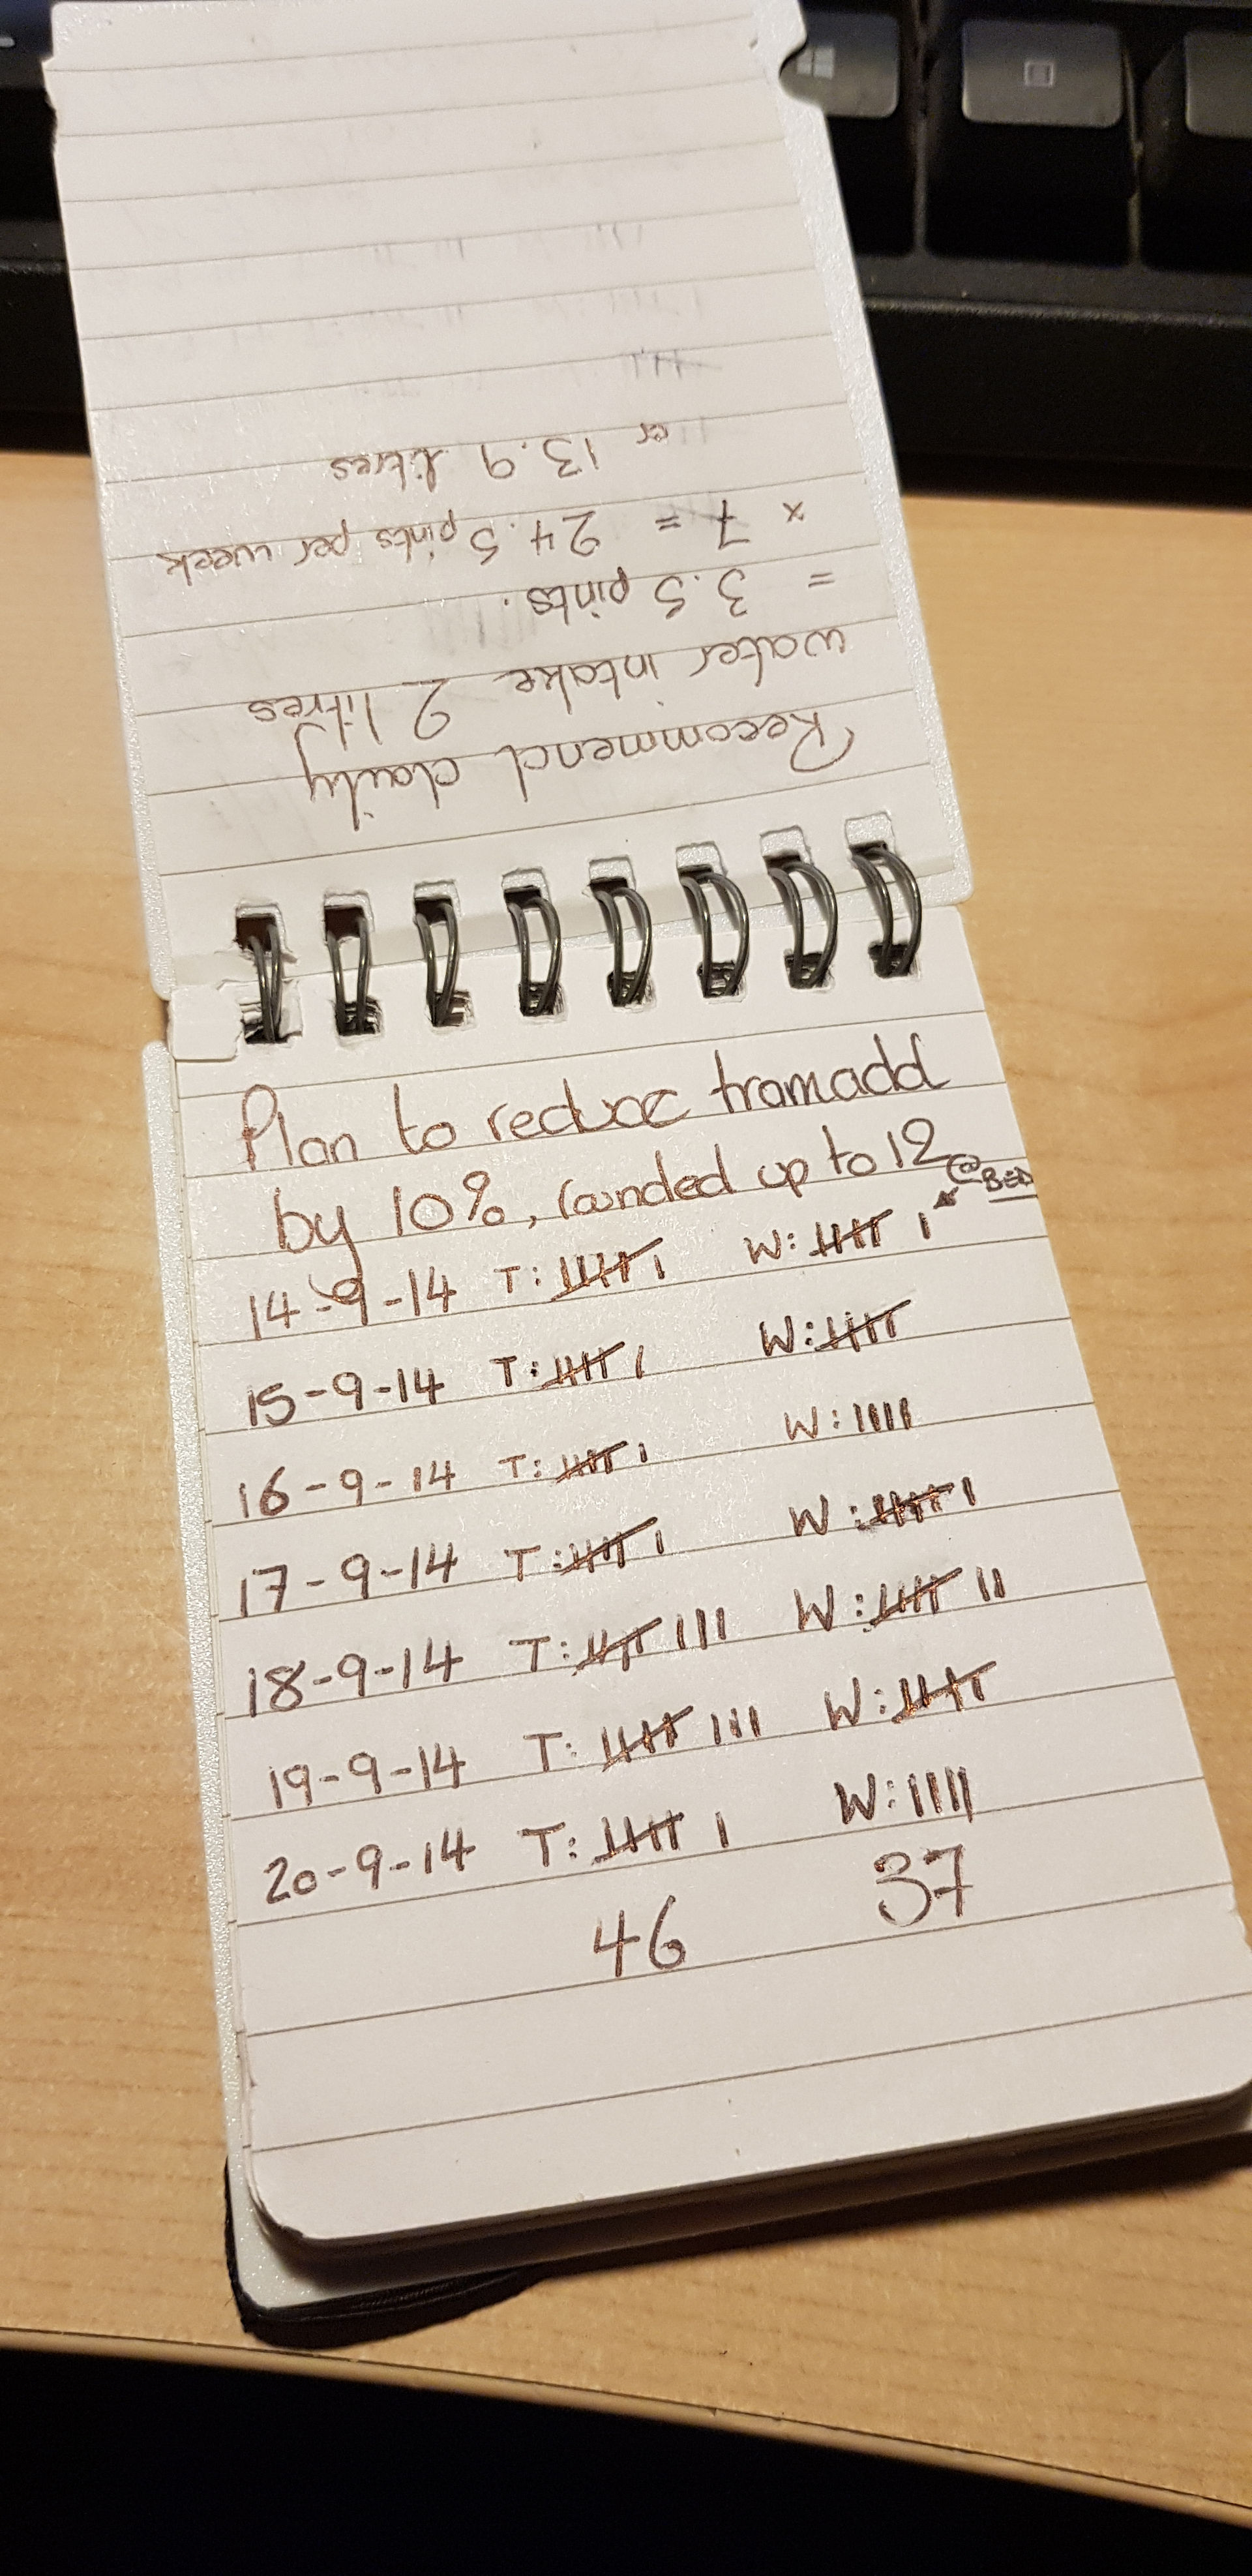 Recommend daily
water intake 2 litres
= 3.5 pints.
x 7 = 24.5 pints per week
or 13.9 litres
Plan to reduce tramadol
by 10%, rounded up to 12
@BED
14-9-14 T: 卌 I W: 卌 I
15-9-14 T: 卌 I W: 卌
16-9-14 T: 卌 I W: IIII
17-9-14 T: 卌 I W: 卌 I
18-9-14 T: 卌 III W: 卌 II
19-9-14 T: 卌 III W: 卌
20-9-14 T: 卌 I W: IIII
46 37